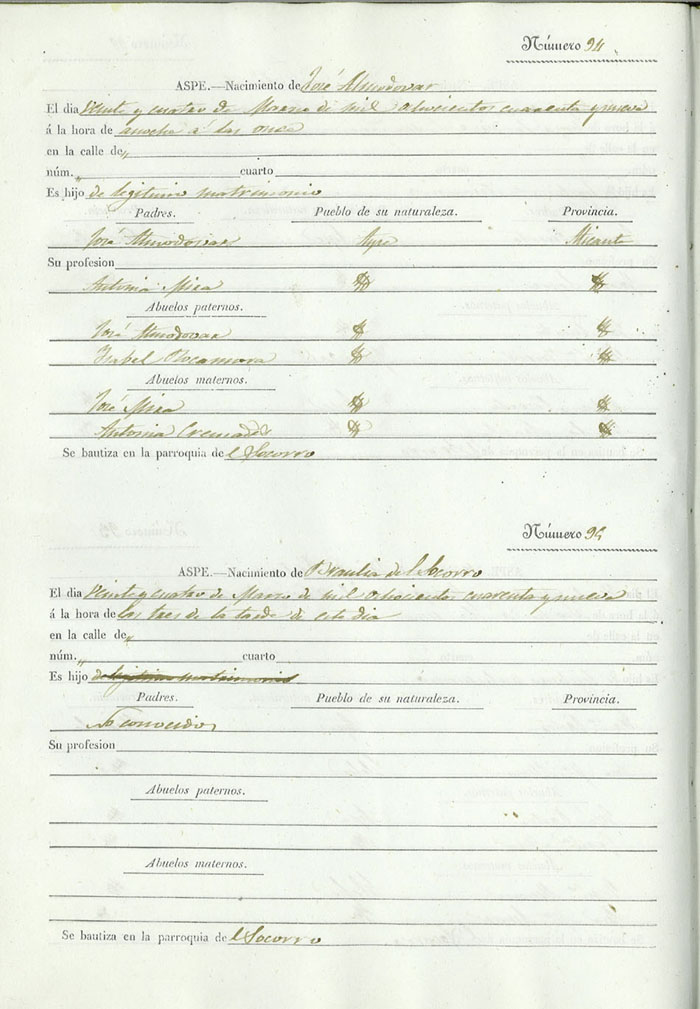 Número 94
ASPE.—Nacimiento de José Almodovar
El dia veinte y cuatro de Marzo de mil ochocientos cuarenta y nueve
á la hora de anoche á las once
en la calle de „
núm. „ cuarto
Es hijo de legitimo matrimonio
Padres. Pueblo de su naturaleza. Provincia.
José Almodovar Aspe Alicante
Su profesion
Antonia Mira
Abuelos paternos.
José Almodovar
Isabel Rocamora
Abuelos maternos.
José Mira
Antonia Cremades
Se bautiza en la parroquia de l Socorro
Número 95
ASPE.—Nacimiento de Braulia del Socorro
El dia veinte y cuatro de Marzo de mil ochocientos cuarenta y nueve
á la hora de las tres de la tarde de este dia
en la calle de „
núm. „ cuarto
Es hijo de legitimo matrimonio
Padres. Pueblo de su naturaleza. Provincia.
No conocidos
Su profesion
Abuelos paternos.
Abuelos maternos.
Se bautiza en la parroquia de l Socorro